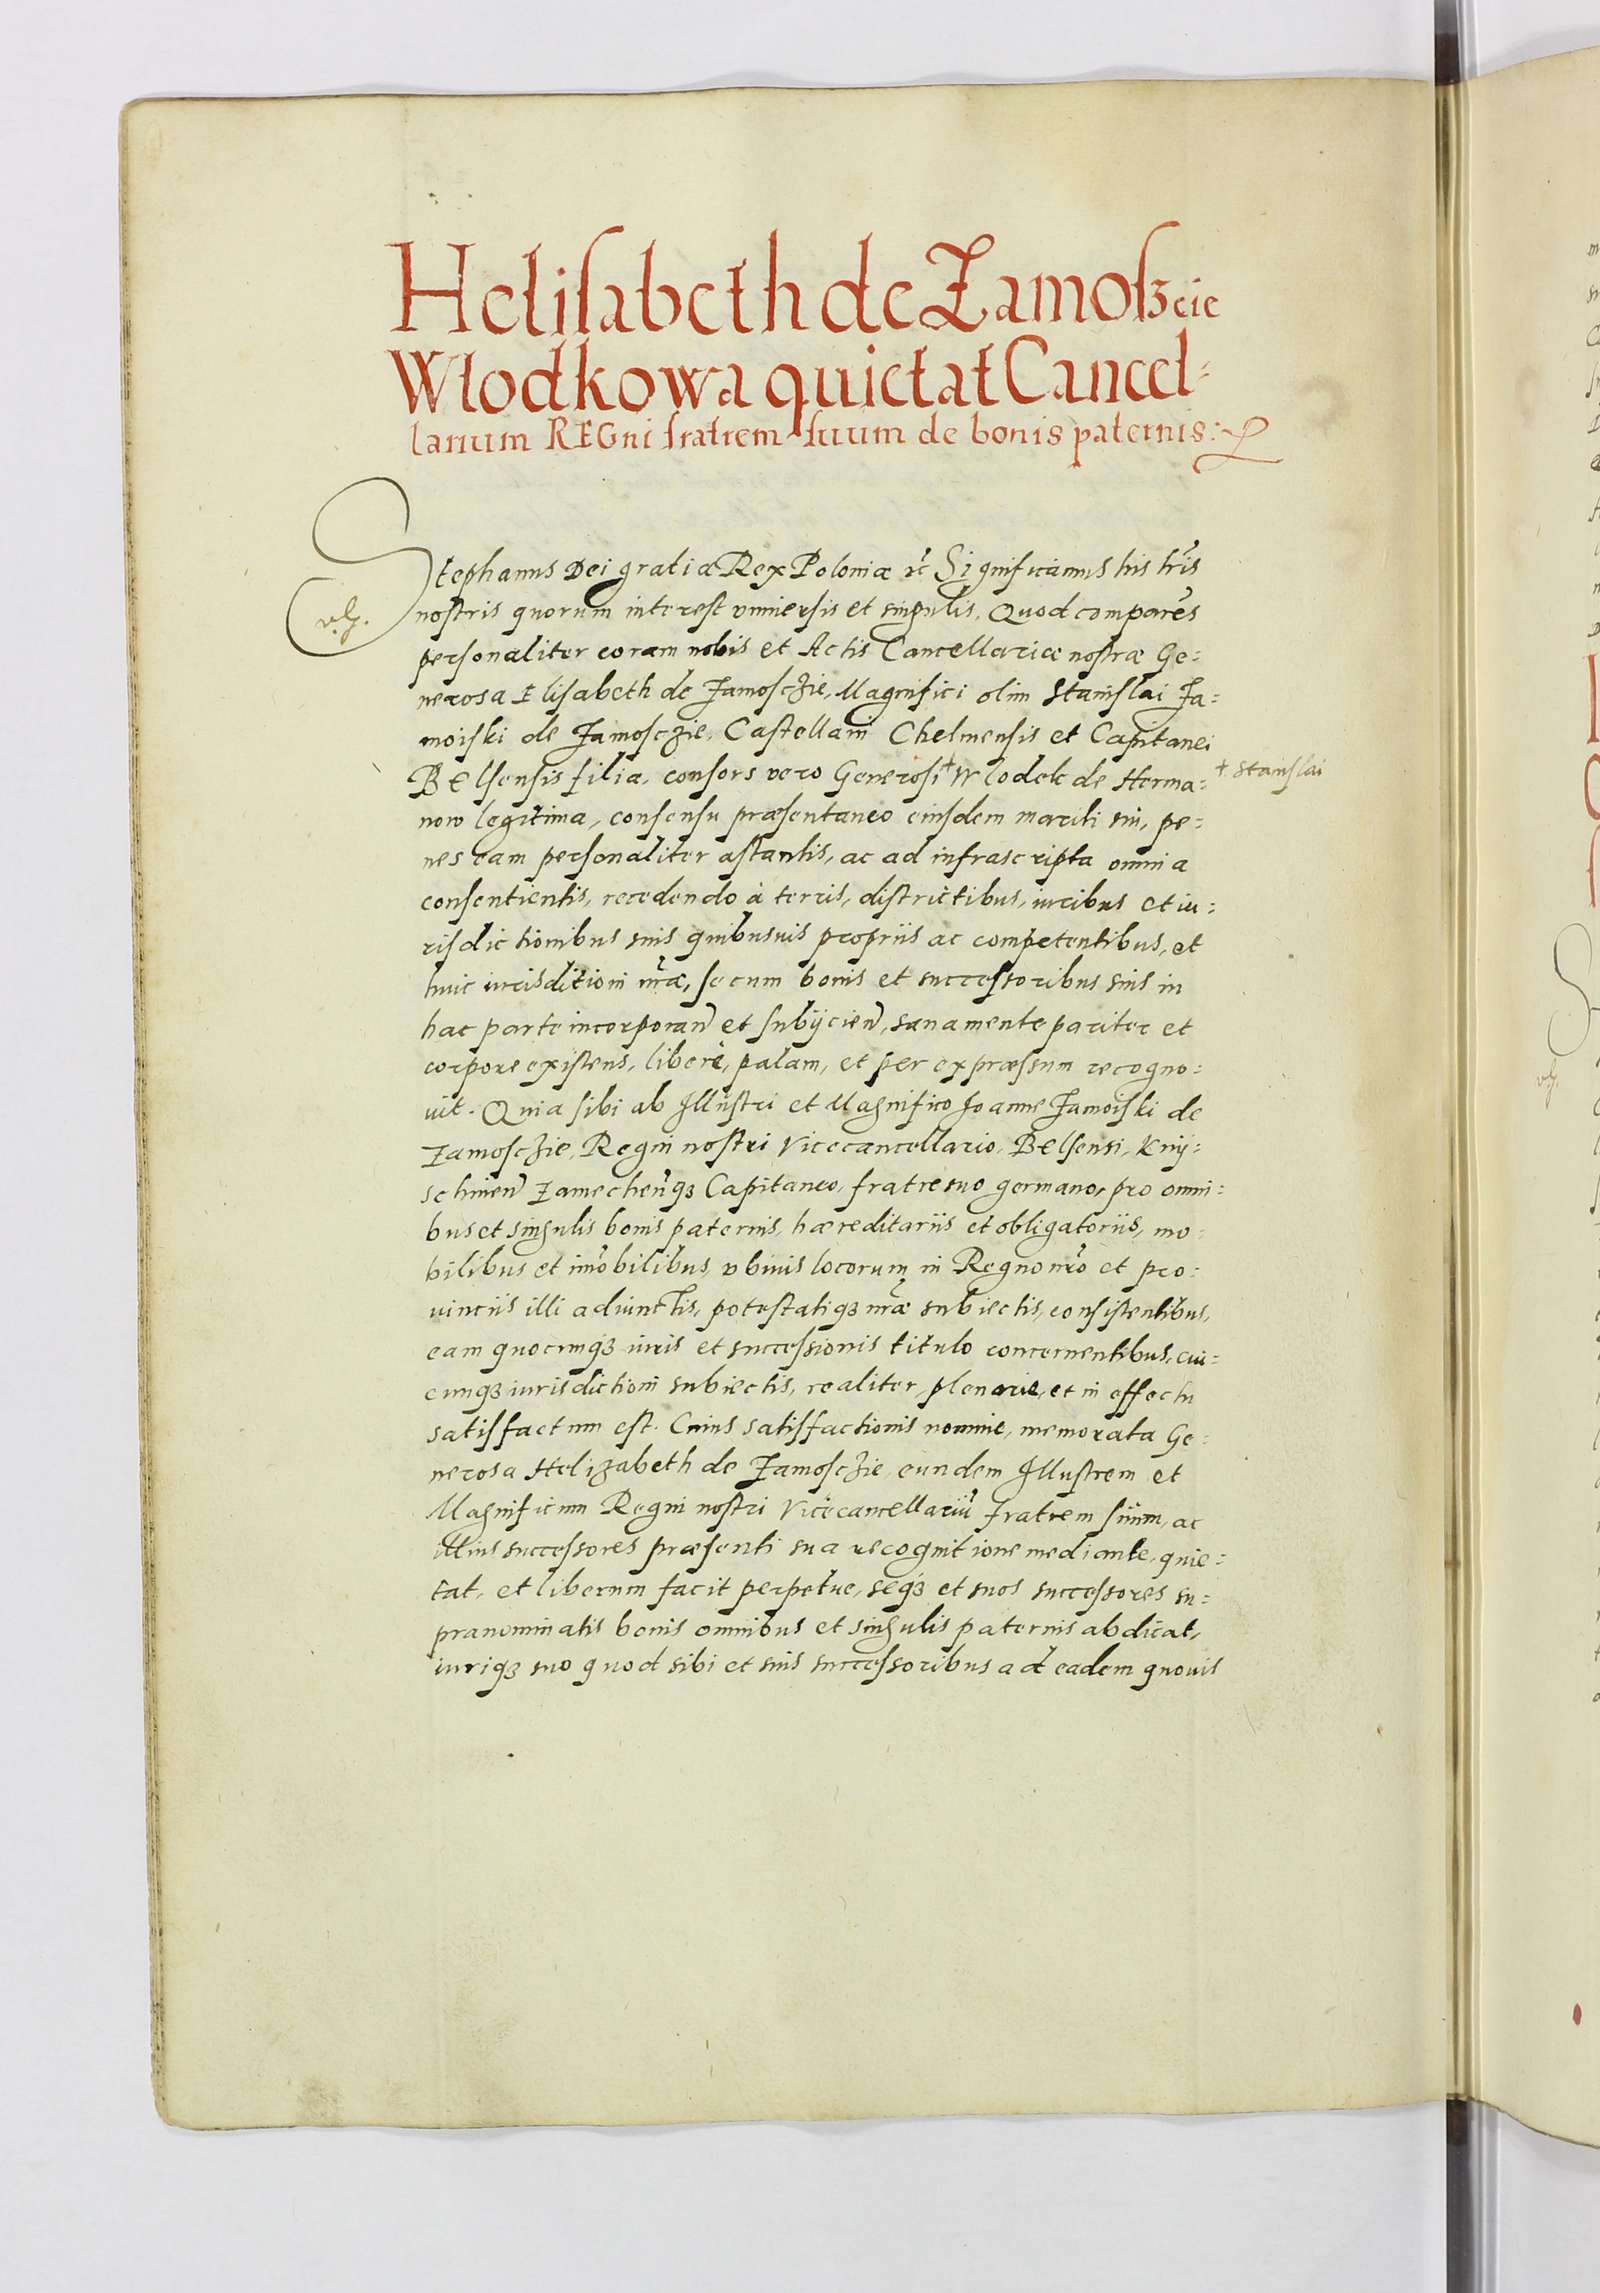 Helisabeth de Zamoszcie
Wlodkowa quietat Cancel-
larium REGni fratrem suum de bonis paternis:
Stephanus Dei gratia Rex Poloniæ etc Significamus his lris
nostris quorum interest vniuersis et singulis, Quod comparẽs
personaliter coram nobis et Actis Cancellariæ nostræ Ge-
nerosa Elisabeth de Zamosczie, Magnifici olim Stanislai Za-
moiski de Zamosczie, Castellani Chelmensis et Capitanei
Belsensis filia, consors vero Generosi + Wlodek de Herma- + Stanislai
now legitima, consensu præsentaneo eiusdem mariti sui, pe-
nes eam personaliter astantis, ac ad infrascripta omnia
consentientis, recedendo à terris, districtibus, iuribus et iu-
risdictionibus suis quibusuis propriis ac competentibus, et
huic iurisditioni nræ, se cum bonis et successoribus suis in
hac parte incorporan et subijcien, sana mente pariter et
corpore existens, liberè, palam, et per expræssum recogno-
uit. Quia sibi ab Illustri et Magnifico Joanne Zamoiski de
Zamosczie, Regni nostri Vicecancellario, Belsensi, Knÿ-
schinen Zamechenq3 Capitaneo, fratre suo germano, pro omni-
bus et singulis bonis paternis, hæreditariis et obligatoriis, mo-
bilibus et imobilibus, vbiuis locorum in Regno nro et pro-
uinciis illi adiunctis, potestatiq3 nræ subiectis, consistentibus,
eam quocunq3 iuris et successionis titulo concernentibus, cui-
cunq3 iurisdictioni subiectis, realiter, plenarie, et in effectu
satisfactum est. Cuius satisfactionis nomine, memorata Ge-
nerosa Helizabeth de Zamosczie, eundem Illustrem et
Magnificum Regni nostri Vicecancellariũ fratrem suum, ac
illius successores præsenti sua recognitione mediante, quie-
tat, et liberum facit perpetue, seq3 et suos successores su-
pranominatis bonis omnibus et singulis paternis abdicat,
iuriq3 suo quod sibi et suis successoribus ad eadem quouis